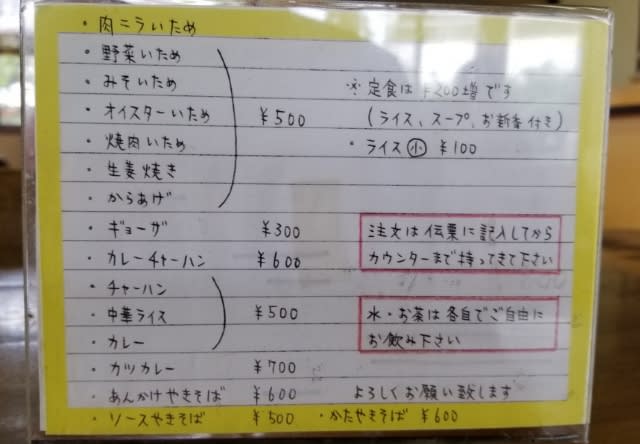 ・肉ニラいため
・野菜いため
・みそいため
・オイスターいため ¥500
・焼肉いため
・生姜焼き
・からあげ
※定食は ¥200増です
(ライス、スープ、お新香付き)
・ライス小 ¥100
・ギョーザ ¥300
・カレーチャーハン ¥600
・チャーハン
・中華ライス ¥500
・カレー
・カツカレー ¥700
・あんかけやきそば ¥600
・ソースやきそば ¥500 ・かたやきそば ¥600
注文は伝票に記入してから
カウンターまで持ってきて下さい
水・お茶は各自でご自由に
お飲み下さい
よろしくお願い致します